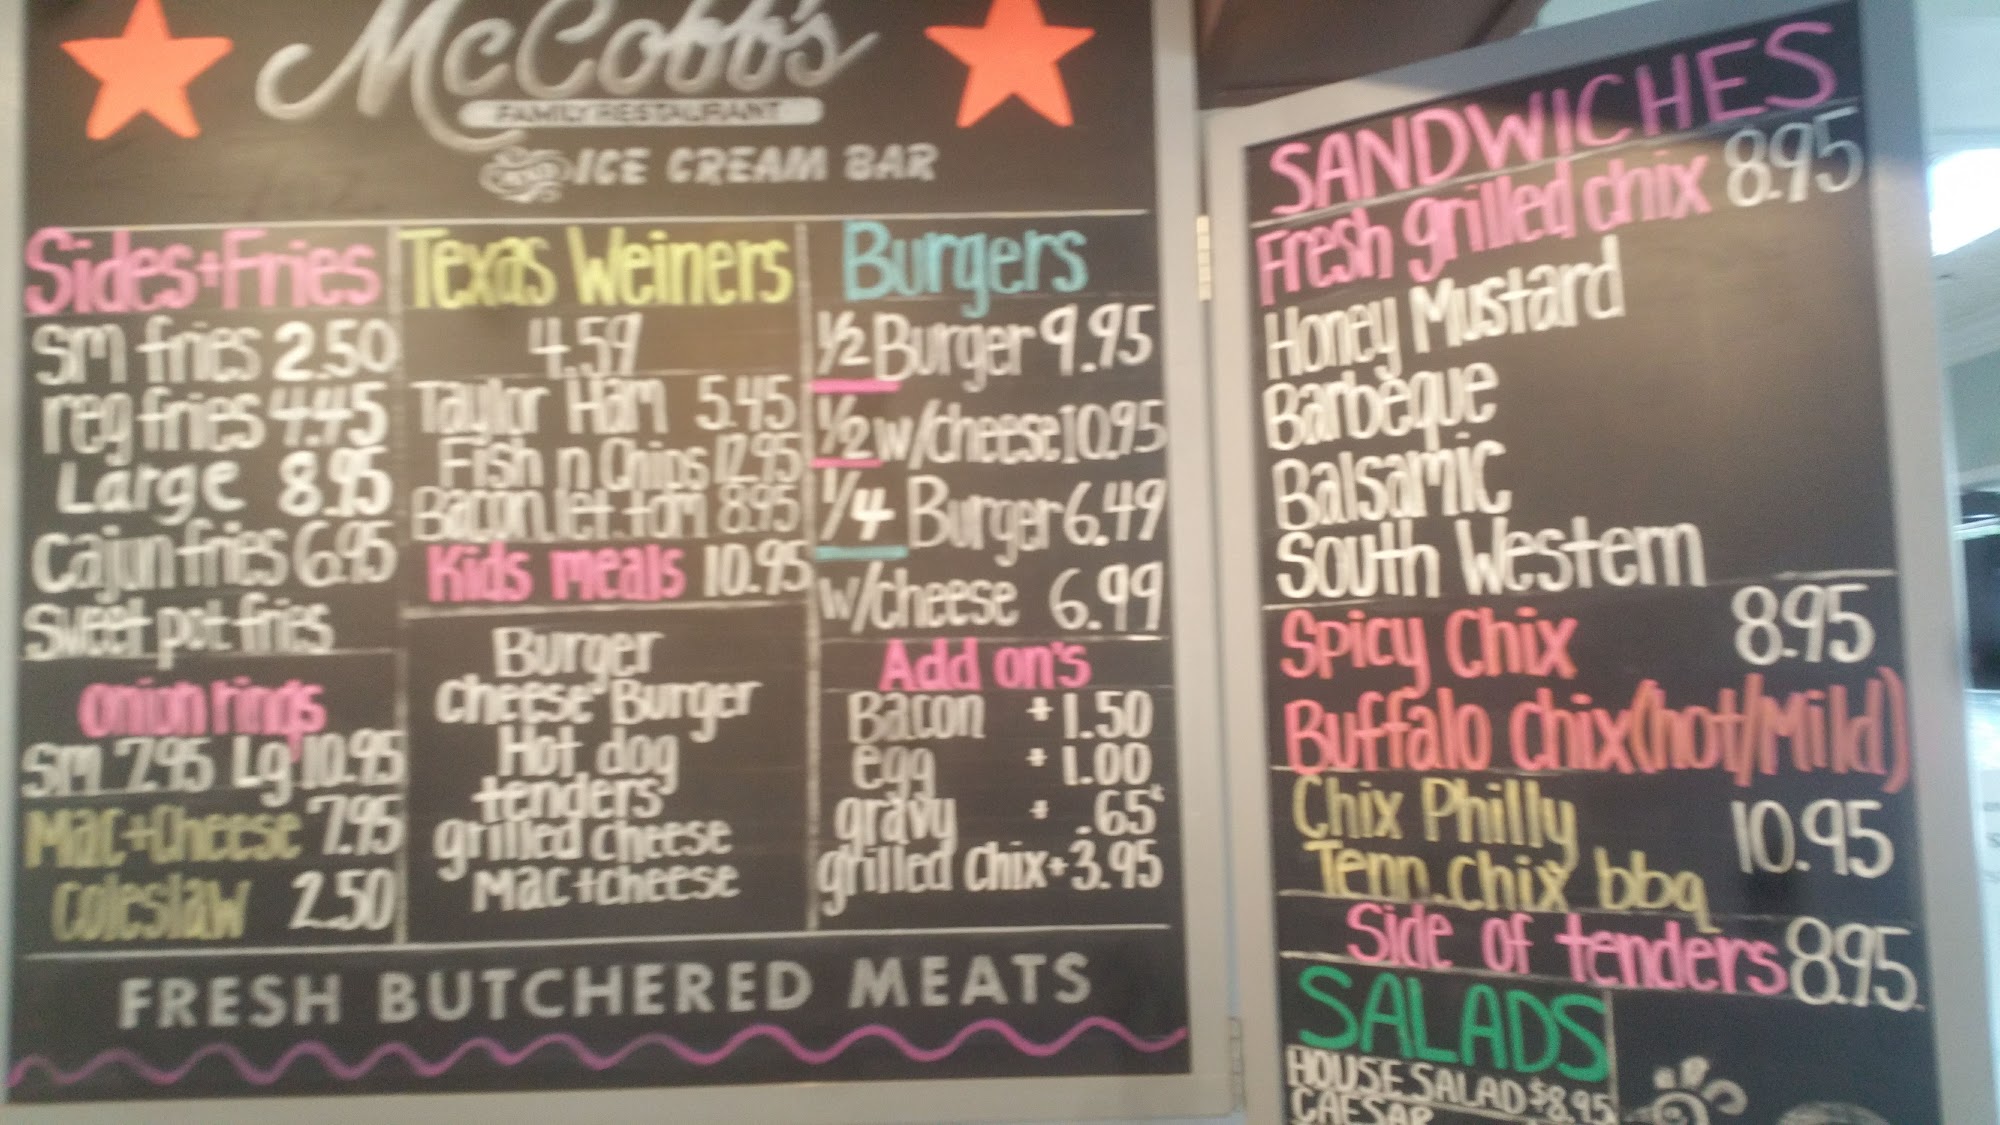 McCobb's
FAMILY RESTAURANT
ICE CREAM BAR
Sides+Fries
Sm fries 2.50
reg fries 4.45
Large 8.95
Cajun fries 6.95
Sweet pot fries
onion rings
Sm 7.95 Lg 10.95
Mac+Cheese 7.95
Coleslaw 2.50
Texas Weiners
4.59
Taylor Ham 5.45
Fish n Chips 12.95
Bacon.let.tom 8.95
Kids meals 10.95
Burger
cheese Burger
Hot dog
tenders
grilled cheese
Mac+cheese
Burgers
1/2 Burger 9.95
1/2 w/cheese 10.95
1/4 Burger 6.49
w/cheese 6.99
Add on's
Bacon +1.50
egg +1.00
gravy + .65¢
grilled chix+3.95
FRESH BUTCHERED MEATS
SANDWICHES
Fresh grilled chix 8.95
Honey Mustard
Barbeque
Balsamic
South Western
Spicy Chix 8.95
Buffalo Chix(hot/Mild)
Chix Philly 10.95
Tenn.Chix bbq
Side of tenders 8.95
SALADS
HOUSE SALAD $8.95
CAESAR